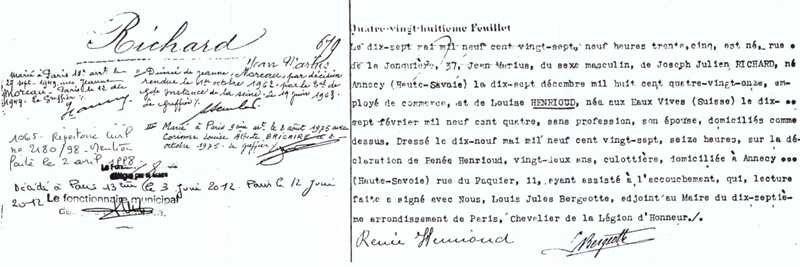 Richard
679
Jean Marius
Marié à Paris 18e art. le
sept. 1949 avec Jeanne
Moreau. Paris le 12
1949. Le Greffier
Divorcé de Jeanne Moreau, par décision
rendue le 1er octobre 1962 par le
de Instance de la Seine. le 19 juin 1968.
Greffier
III Marié à Paris 9ième art. le 2 août 1975 avec
Corinne Louise Alberte BRICAIRE le 2
octobre 1975. le greffier
1065. Répertoire civil
no 2180/98. Mention
Porté le 2 avril 1998
Décédé à Paris 13ème le 3 juin 2012. Paris le 12 juin
2012
Le fonctionnaire municipal
Quatre-vingt-huitième Feuillet
Le dix-sept mai mil neuf cent vingt-sept, neuf heures trente,cinq, est né, rue
de la Jonquière, 37, Jean Marius, du sexe masculin, de Joseph Julien RICHARD, né
Annecy (Haute-Savoie) la dix-sept décembre mil huit cent quatre-vingt-onze, em-
ployé de commerce, et de Louise HENRIOUD, née aux Eaux Vives (Suisse) le dix-
sept février mil neuf cent quatre, sans profession, son épouse, domiciliés comme
dessus. Dressé le dix-neuf mai mil neuf cent vingt-sept, seize heures, sur la dé-
claration de Renée Henrioud, vingt-deux ans, culottière, domiciliée à Annecy
(Haute-Savoie) rue du Paquier, 11, ayant assisté à l'accouchement, qui, lecture
faite a signé avec Nous, Louis Jules Bergeotte, adjoint au Maire du dix-septiè-
me arrondissement de Paris, Chevalier de la Légion d'Honneur./.
Renée Henrioud
LBergeotte